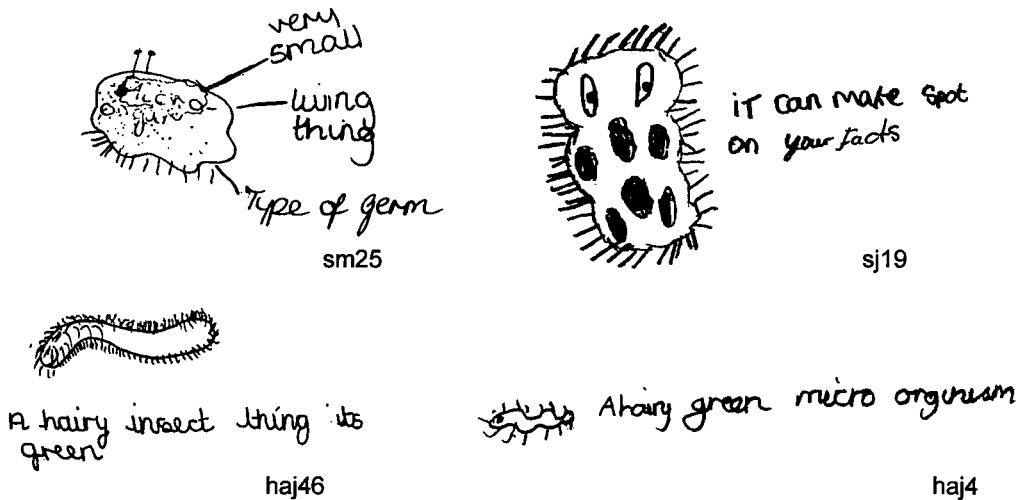 very
small
living
thing
Type of germ
sm25
iT can make spot
on your facts
sj19
A hairy insect thing its
green
haj46
A hairy green micro orginism
haj4